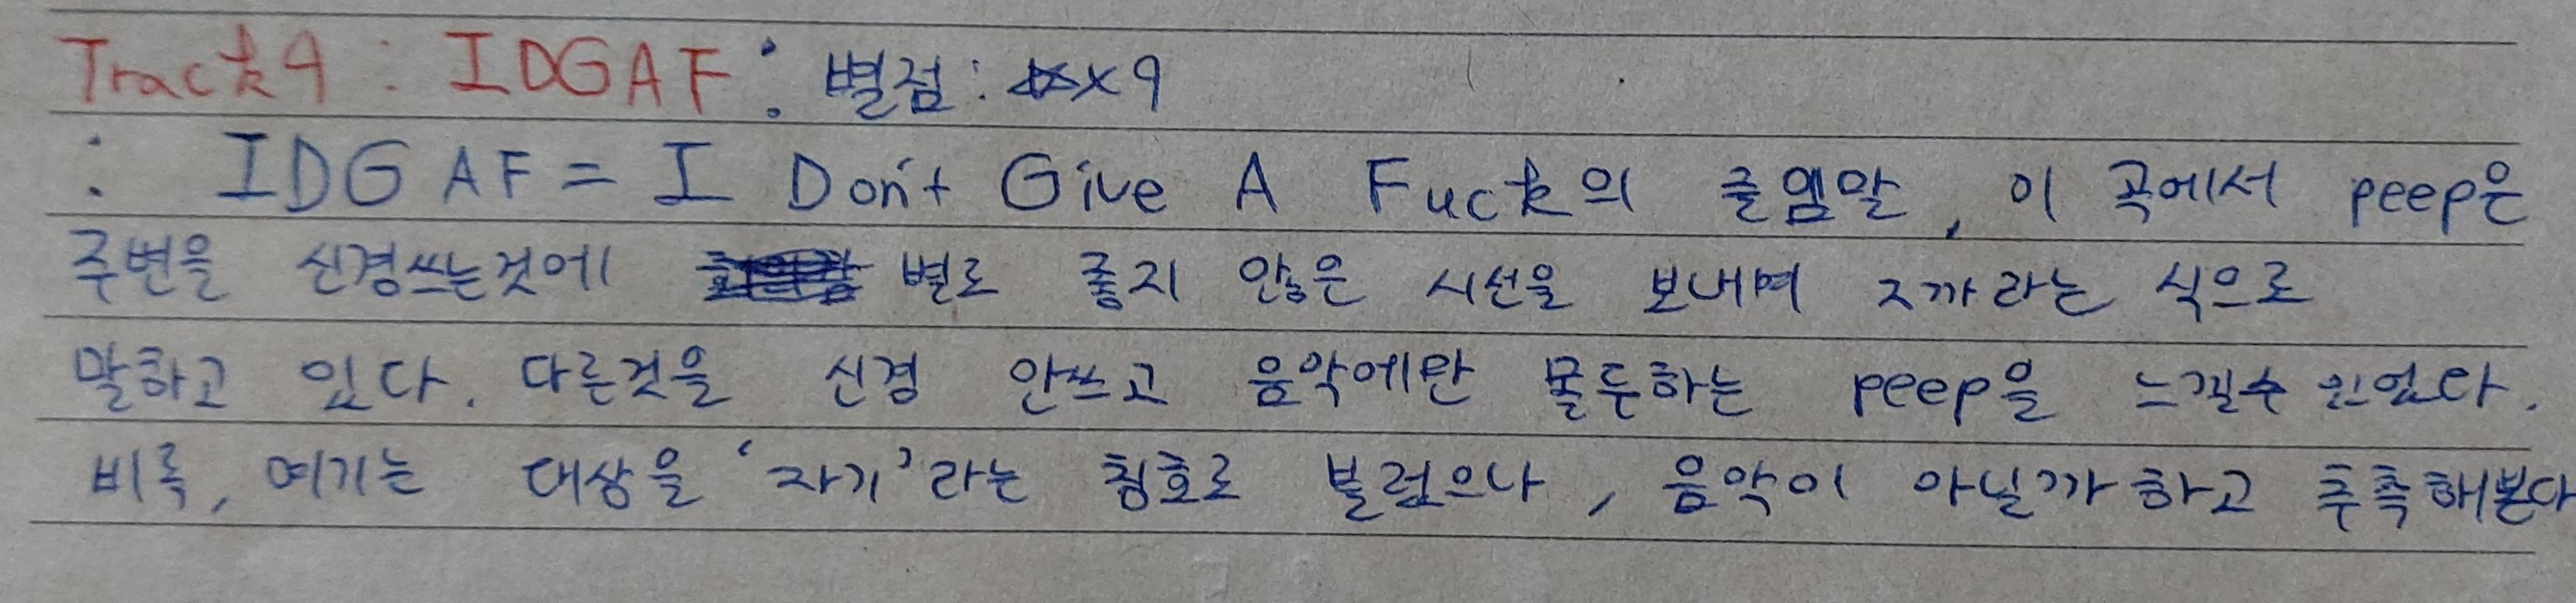 Track9 : IDGAF : 별점 : ☆×9
: IDGAF = I Don't Give A Fuck의 줄임말, 이 곡에서 peep은
주변을 신경쓰는것에 별로 좋지 않은 시선을 보내며 ㅈ까라는 식으로
말하고 있다. 다른것을 신경 안쓰고 음악에만 몰두하는 peep을 느낄수 있었다.
비록, 여기는 대상을 '자기'라는 칭호로 불렀으나, 음악이 아닐까하고 추측해본다